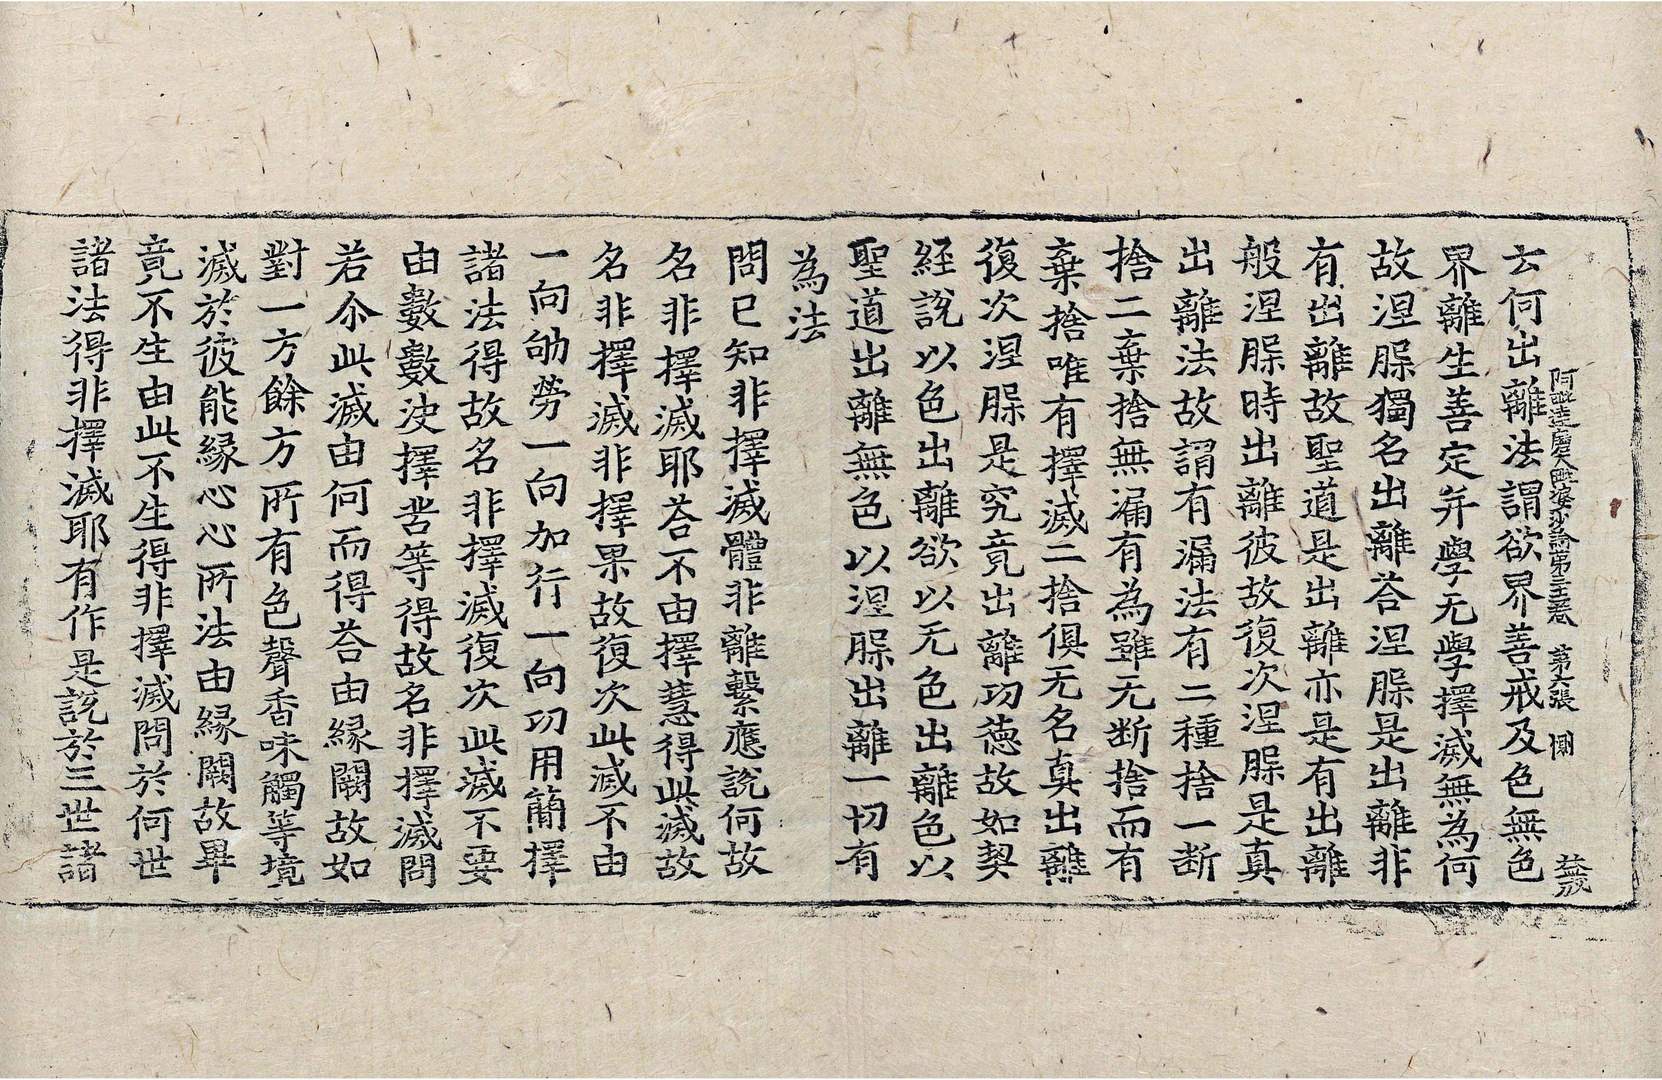 阿毗達磨大毗婆沙論第三十二卷 第六張 惻
益成
云何出離法謂欲界善戒及色無色
界離生善定并學无學擇滅無為何
故涅槃獨名出離荅涅槃是出離非
有出離故聖道是出離亦是有出離
般涅槃時出離彼故復次涅槃是真
出離法故謂有漏法有二種捨一断
捨二棄捨無漏有為雖无断捨而有
棄捨唯有擇滅二捨俱无名真出離
復次涅槃是究竟出離功德故如契
經說以色出離欲以无色出離色以
聖道出離無色以涅槃出離一切有
為法
問已知非擇滅體非離繫應說何故
名非擇滅耶荅不由擇慧得此滅故
名非擇滅非擇果故復次此滅不由
一向劬勞一向加行一向功用簡擇
諸法得故名非擇滅復次此滅不要
由數數決擇苦等得故名非擇滅問
若尒此滅由何而得荅由緣闕故如
對一方餘方所有色聲香味觸等境
滅於彼能緣心心所法由緣闕故畢
竟不生由此不生得非擇滅問於何世
諸法得非擇滅耶有作是說於三世諸